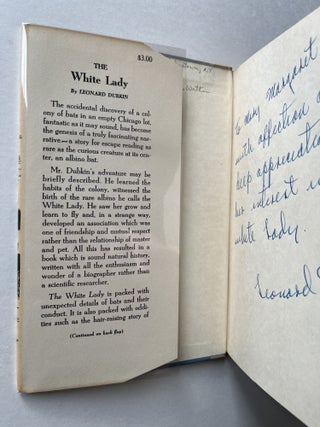 $3.00
THE
White Lady
By LEONARD DUBKIN
The accidental discovery of a col-
ony of bats in an empty Chicago lot,
fantastic as it may sound, has become
the genesis of a truly fascinating nar-
rative—a story for escape reading as
rare as the curious creature at its cen-
ter, an albino bat.
Mr. Dubkin's adventure may be
briefly described. He learned the
habits of the colony, witnessed the
birth of the rare albino he calls the
White Lady. He saw her grow and
learn to fly and, in a strange way,
developed an association which was
one of friendship and mutual respect
rather than the relationship of master
and pet. All this has resulted in a
book which is sound natural history,
written with all the enthusiasm and
wonder of a biographer rather than
a scientific researcher.
The White Lady is packed with
unexpected details of bats and their
conduct. It is also packed with oddi-
ties such as the hair-raising story of
(Continued on back flap)
To Mary Margaret
with affection
deep appreciation
her interest
white Lady.
Leonard